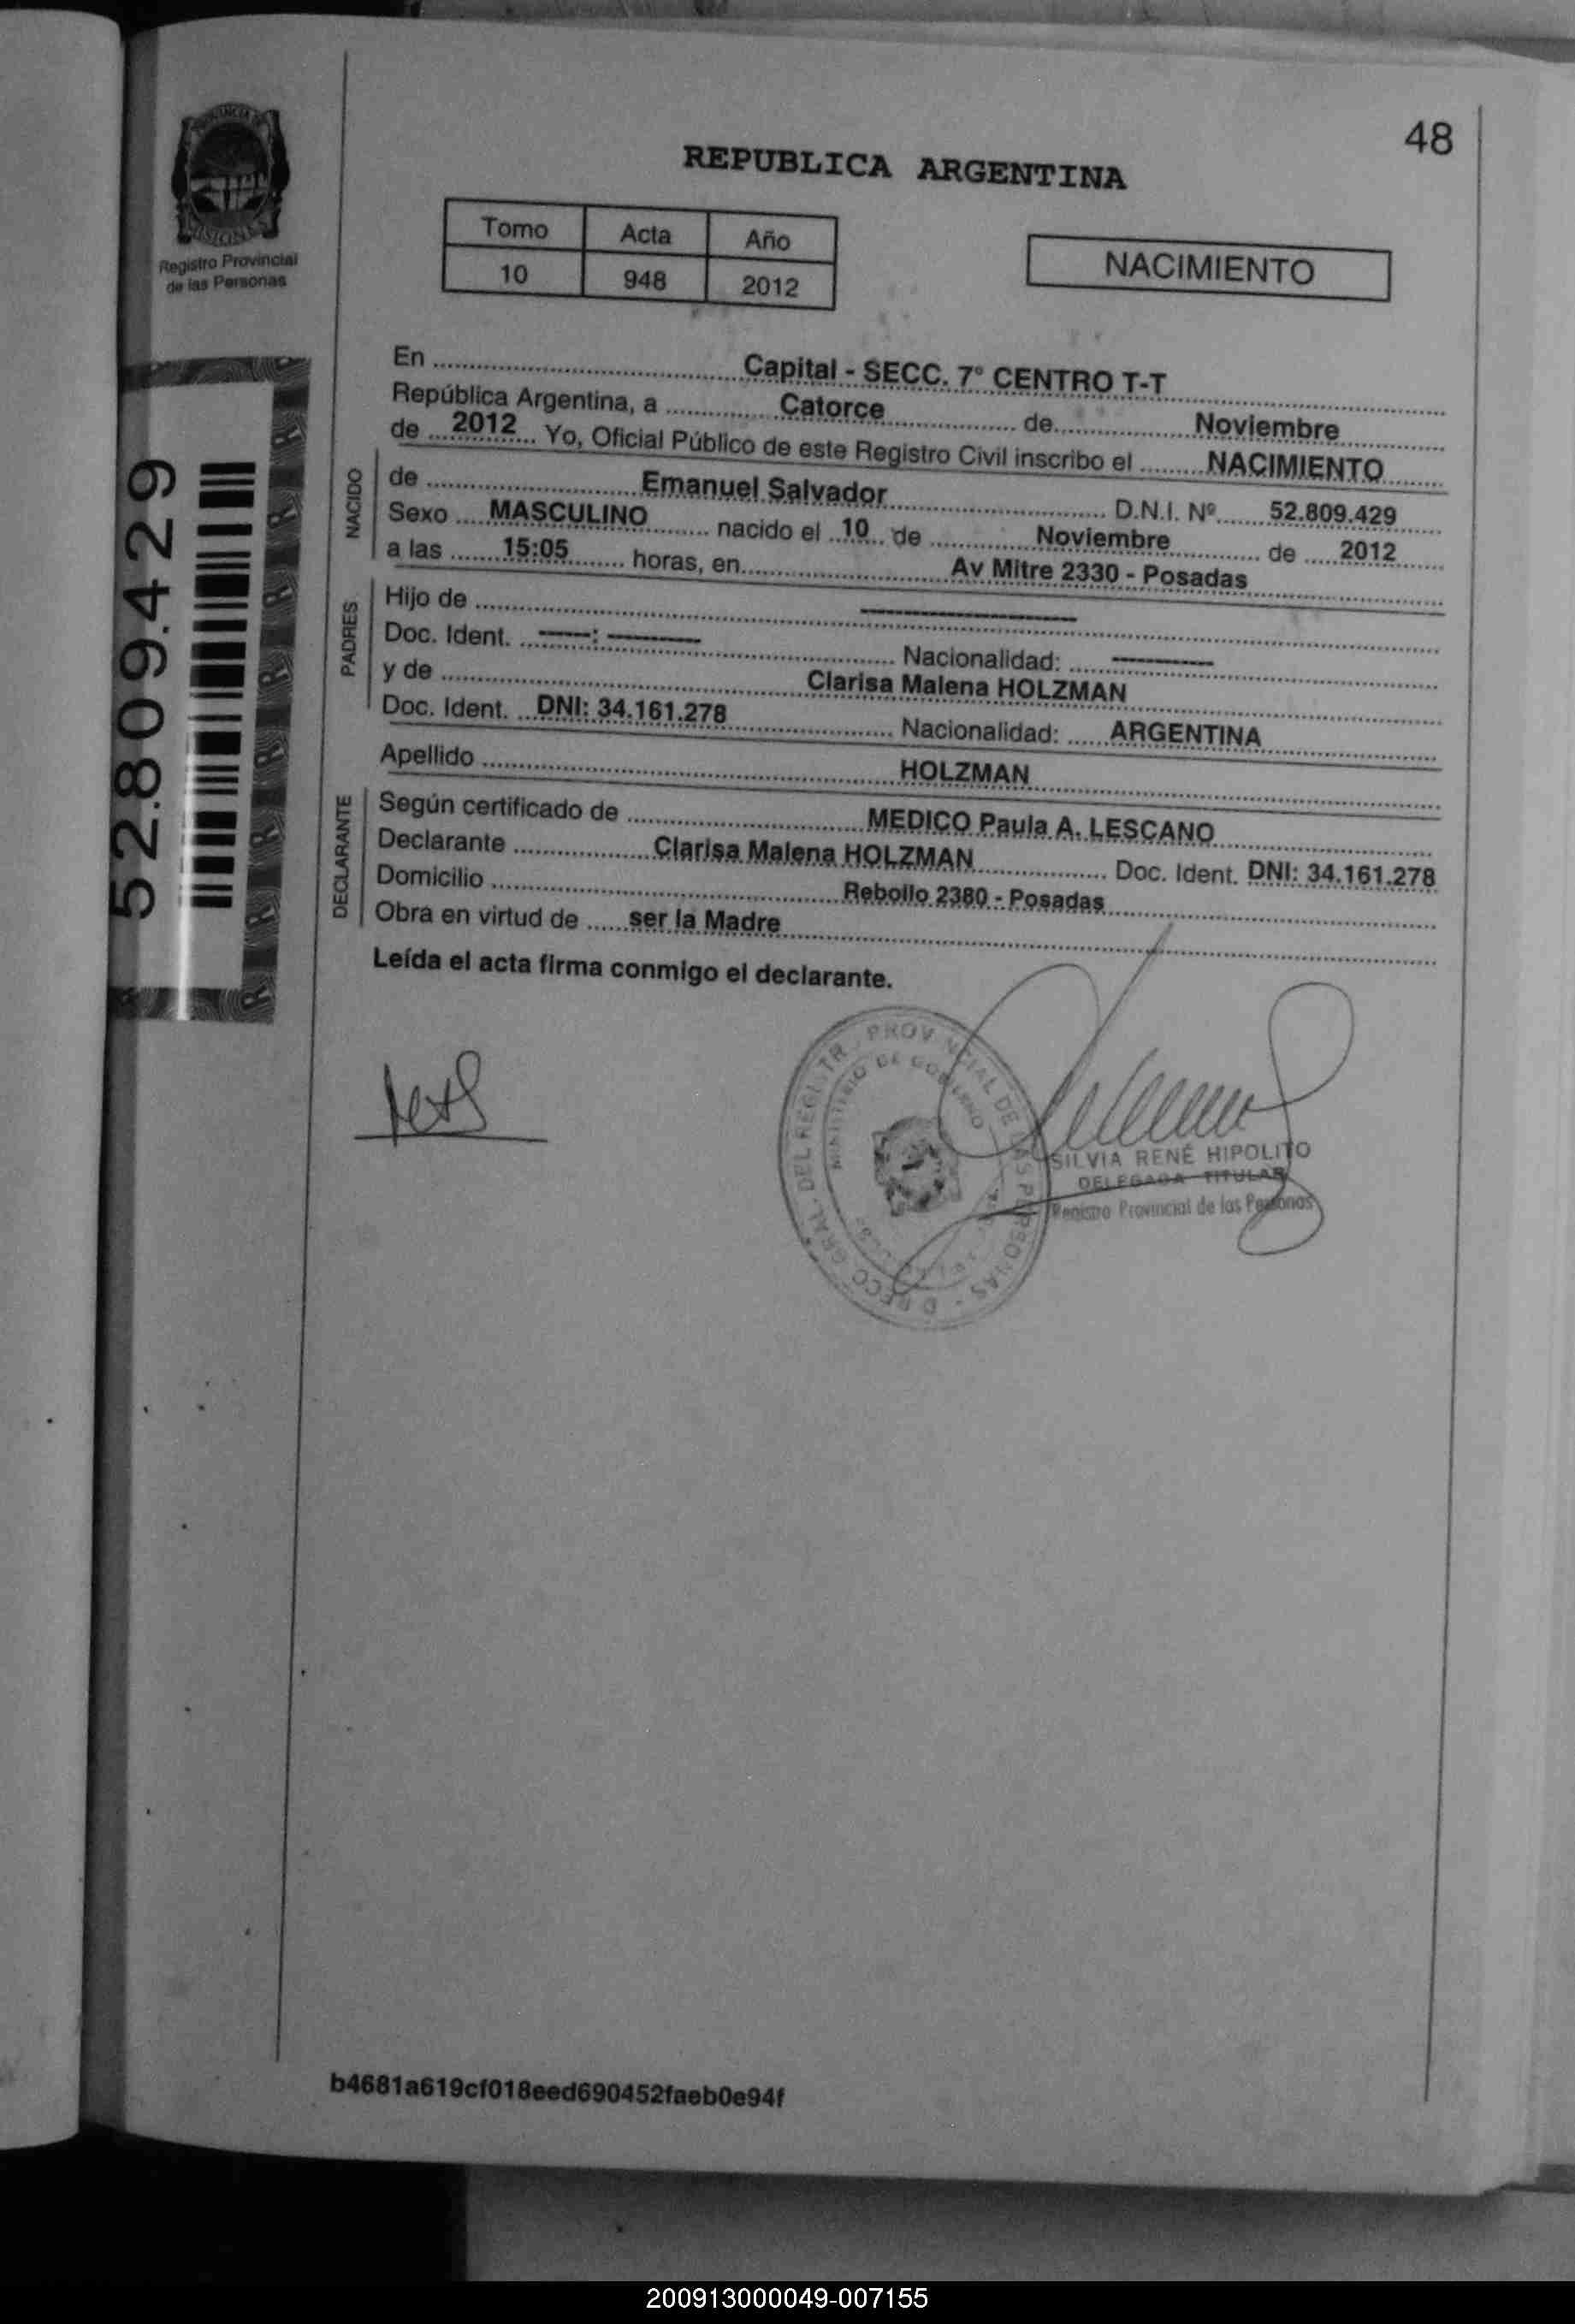 48
PROVINCIA DE
MISIONES
Registro Provincial
de las Personas
REPUBLICA ARGENTINA
Tomo Acta Año
10 948 2012
NACIMIENTO
52.809.429
En Capital - SECC. 7° CENTRO T-T
República Argentina, a Catorce de Noviembre
de 2012 Yo, Oficial Público de este Registro Civil inscribo el NACIMIENTO
NACIDO
de Emanuel Salvador D.N.I. Nº 52.809.429
Sexo MASCULINO nacido el 10 de Noviembre de 2012
a las 15:05 horas, en Av Mitre 2330 - Posadas
PADRES
Hijo de ----------
Doc. Ident. -----: ---------- Nacionalidad: ----------
y de Clarisa Malena HOLZMAN
Doc. Ident. DNI: 34.161.278 Nacionalidad: ARGENTINA
Apellido HOLZMAN
DECLARANTE
Según certificado de MEDICO Paula A. LESCANO
Declarante Clarisa Malena HOLZMAN Doc. Ident. DNI: 34.161.278
Domicilio Rebollo 2380 - Posadas
Obra en virtud de ser la Madre
Leída el acta firma conmigo el declarante.
MINISTERIO DE GOBIERNO
SILVIA RENÉ HIPOLITO
DELEGADA TITULAR
Registro Provincial de las Personas
b4681a619cf018eed690452faeb0e94f
200913000049-007155